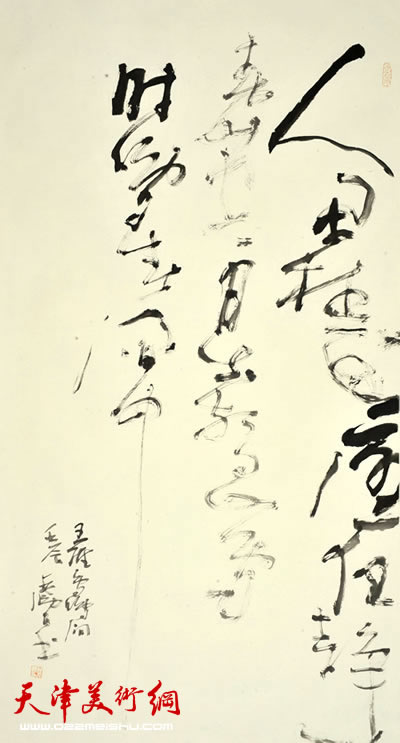 人闲桂花落夜静
春山空月出惊山鸟
时鸣春涧中
王維鸟鸣涧
壬辰
天津美術網
www.022meishu.com